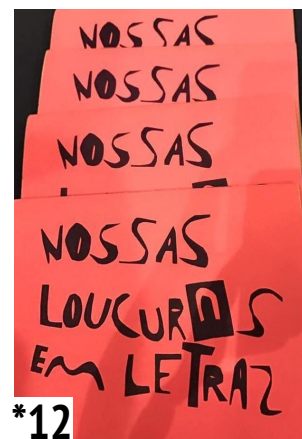 NOSSAS
NOSSAS
NOSSAS
NOSSAS
LOUCURAS
EM LETRAZ
*12